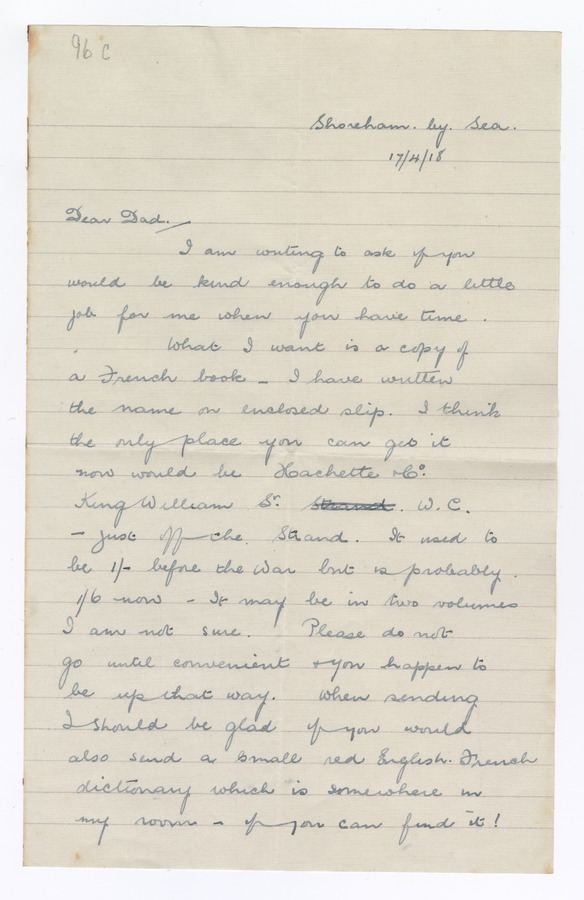 96 C
Shoreham. by. Sea.
17/4/18
Dear Dad.
I am writing to ask if you
would be kind enough to do a little
job for me when you have time.
What I want is a copy of
a French book - I have written
the name on enclosed slip. I think
the only place you can get it
now would be Hachette & Co.
King William St. Strand. W.C.
- just off the Strand. It used to
be 1/- before the War but is probably.
1/6 now - It may be in two volumes
I am not sure. Please do not
go until convenient & you happen to
be up that way. When sending
I should be glad if you would
also send a small red English-French
dictionary which is somewhere in
my room - if you can find it!